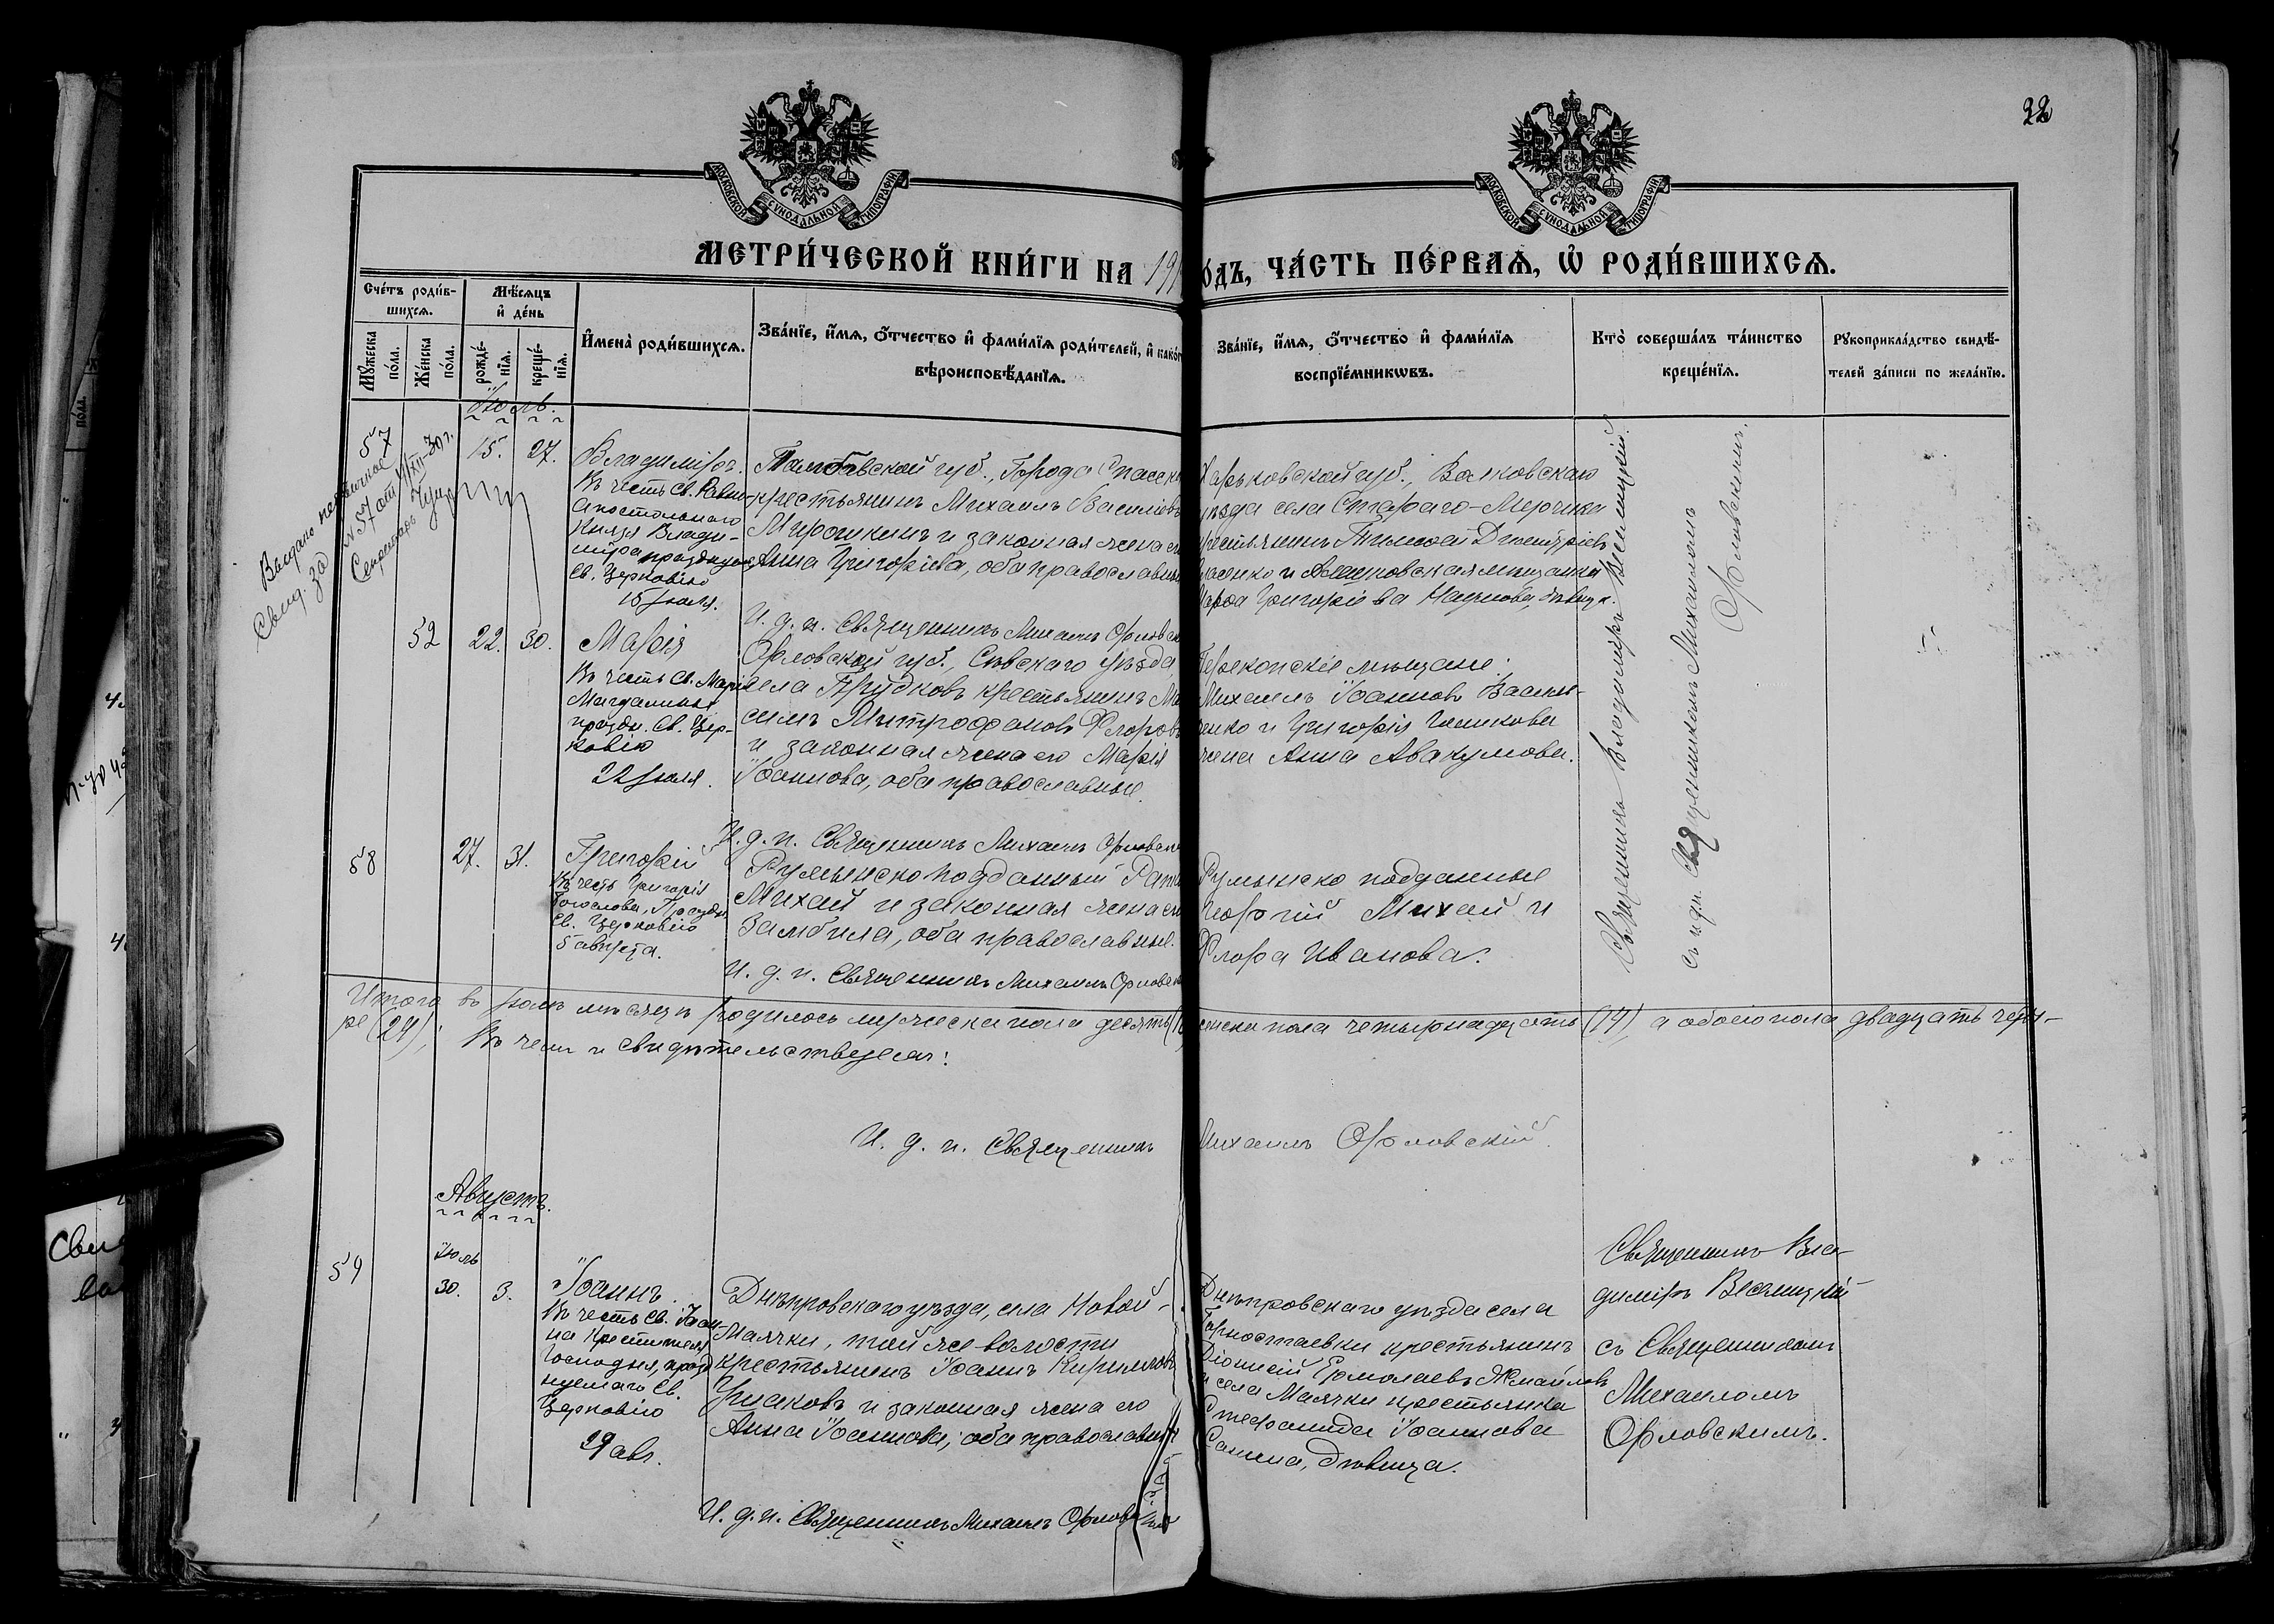 22
МОСКОВСКОЙ СѴНОДАЛЬНОЙ ТИПОГРАФІИ
МОСКОВСКОЙ СѴНОДАЛЬНОЙ ТИПОГРАФІИ
МЕТРИ́ЧЕСКОЙ КНИ́ГИ НА 191
ОДЪ, ЧА́СТЬ ПЕ́РВАѦ, Ѡ҆ РОДИ́ВШИХСѦ.
Сче́тъ роди́в-
шихсѧ.
Мѹ́жеска по́ла.
Же́нска по́ла.
Мѣ́сѧцъ
и҆ де́нь
рожде́-
нїѧ.
креще́-
нїѧ.
И҆мена̀ роди́вшихсѧ.
Зва́нїе, и҆́мѧ, ѻ҆́тчество и҆ фами́лїѧ роди́телей, и҆ како́г
вѣроисповѣ́данїѧ.
Зва́нїе, и҆́мѧ, ѻ҆́тчество и҆ фами́лїѧ
воспрїе́мникѡвъ.
Кто̀ соверша́лъ та́инство
креще́нїѧ.
Рꙋкоприкла́дство свидѣ́-
телей за́писи по жела́нїю.
Іюль.
Выдано
Свид. за № 57 от /XII-30 г.
Секретарь
57
15. 27.
Владиміръ.
Въ честь Св. Равно-
Апостольнаго
Князя Влади-
міра празднуем
Св. Церковію
15 Іюля.
Тамбовской губ., Города Спасска
крестьянинъ Михаилъ Василіевъ
Мирошкинъ и законная жена е
Анна Григоріева, оба православны
И. д. п. Священникъ Михаилъ Орловск
Харьковской губ., Валковскаго
уѣзда села Стараго-Мерчика
крестьянинъ Тимоѳей Димитріевъ
Власенко и Алешковская мѣщанка
Марѳа Григоріева Наумова, дѣвица.
52
22. 30.
Марія
Въ честь Св. Маріи
Магдалины
праздн. Св. Цер-
ковію
22 Іюля.
Орловской губ., Сѣвскаго уѣзда
села Прудковъ крестьянинъ Ма
симъ Митрофановъ Флоровъ
и законная жена его Марія
Іоаннова, оба православные.
И. д. п. Священникъ Михаилъ Орловск
Перекопскіе мѣщане:
Михаилъ Іоанновъ Васил-
енко и Григорія
жена Анна Авакумова.
58
27. 31.
Григорій
Въ честь Григорія
Богослова, Праздн.
Св. Церковію
5 августа.
Румынско подданный
Михай и законная жена ег
Замбила, оба православные.
И. д. п. Священникъ Михаилъ Орловск
Румынско подданные
Георгій Михай и
Флора Иванова.
Священникъ Владиміръ
съ и. д. п. Священникомъ Михаиломъ
Орловскимъ.
Итого въ Іюлѣ мѣсяцѣ родилось мужеска пола десять (10) женска пола четырнадцать (14), а обоего пола двадцать четы-
ре (24);
Въ чемъ и свидѣтельствуемъ:
И. д. п. Священникъ Михаилъ Орловскій.
Августъ.
59
Іюль
30. 3.
Іоаннъ.
Въ честь Св. Іоан-
на Крестителя
Господня, празд
нуемаго Св.
Церковію
29 авг.
Днѣпровскаго уѣзда, села Новой-
Маячки, той же волости
крестьянинъ Іоаннъ Кирилловъ
Ушаковъ и законная жена его
Анна Іоаннова, оба православные
И. д. п. Священникъ Михаилъ Орловскій
Днѣпровскаго уѣзда села
Горностаевки крестьянинъ
Діонисій Ермолаевъ Жмайловъ
и села Маячки крестьянка
Стефанида Іоаннова
дѣвица.
Священникъ Вла-
диміръ
съ Священникомъ
Михаиломъ
Орловскимъ.